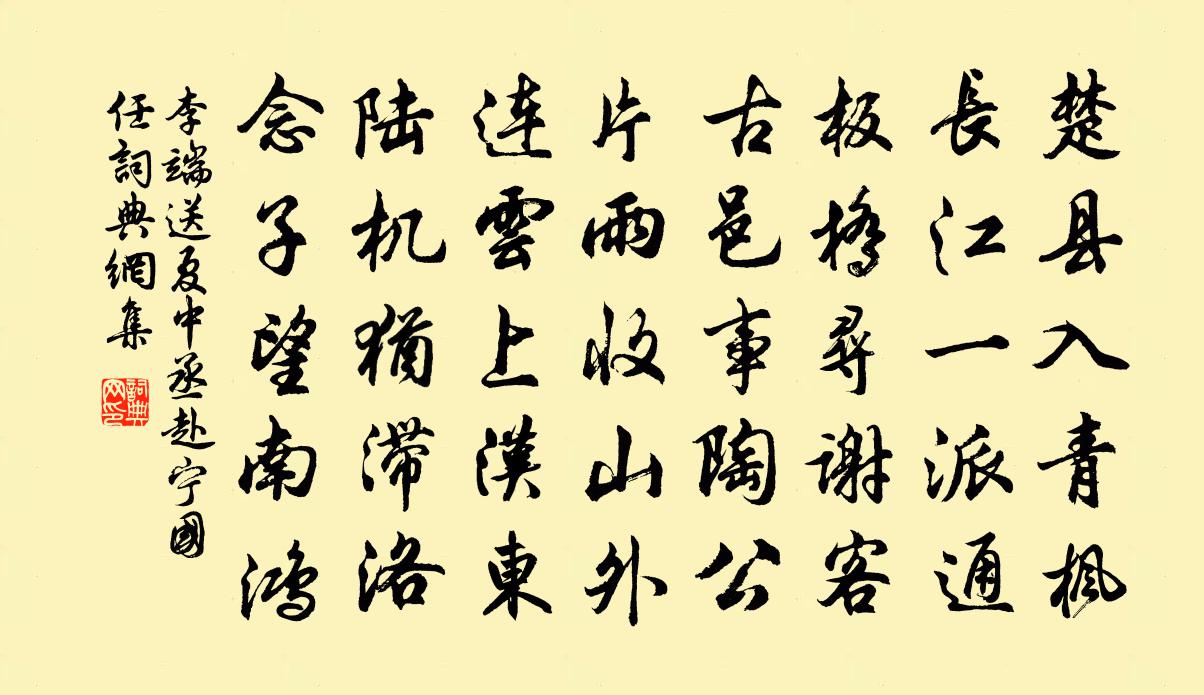 楚县入青枫
長江一派通
板橋尋谢客
古邑事陶公
片雨收山外
连雲上漢東
陆机猶滞洛
念子望南鸿
李端送夏中丞赴宁國
任詞典網集
詞典
网印